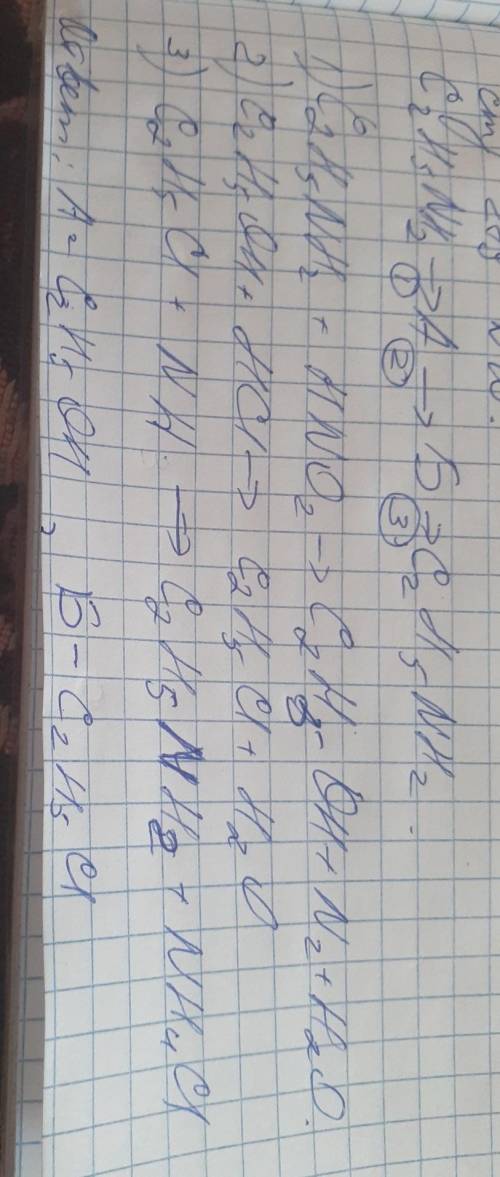 C₂H₅NH₂ → A → Б → C₂H₅NH₂.
① ② ③
1) C₂H₅NH₂ + HNO₂ → C₂H₅OH + N₂ + H₂O.
2) C₂H₅OH + HCl → C₂H₅Cl + H₂O
3) C₂H₅Cl + NH → C₂H₅NH₂ + NH₄Cl
Ответ: A - C₂H₅OH, Б - C₂H₅Cl